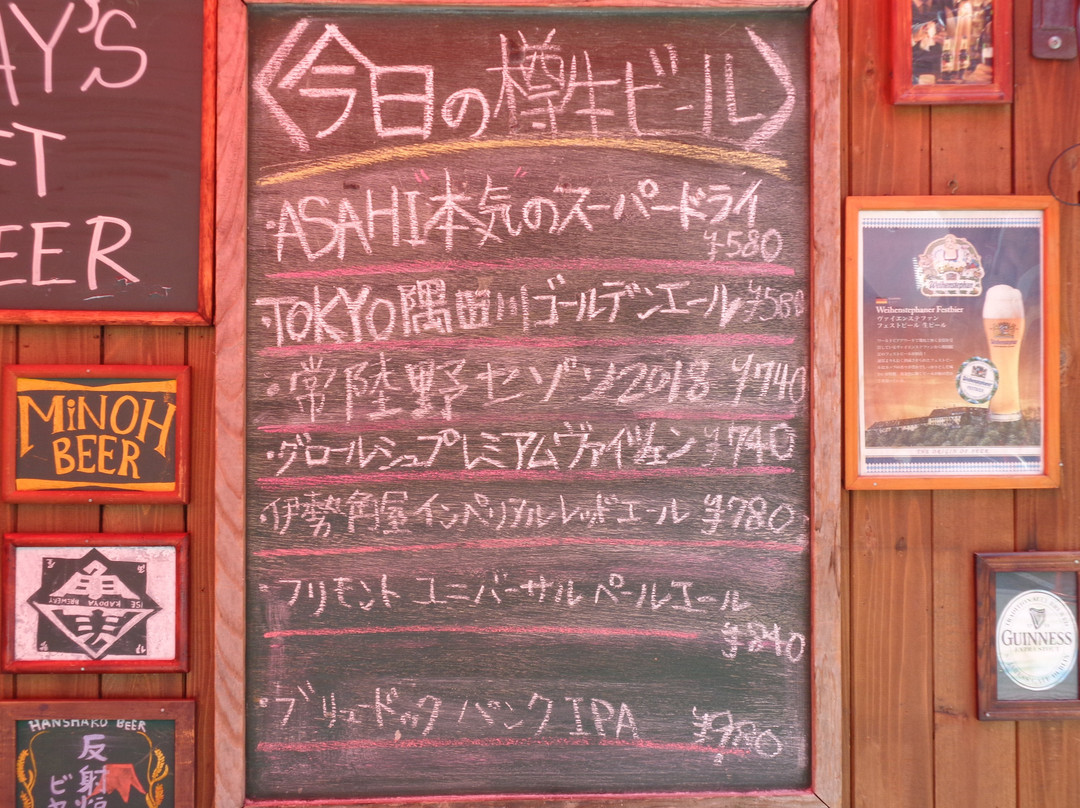 〈今日の樽生ビール〉
・ASAHI"本気"のスーパードライ
¥580
・TOKYO隅田川ゴールデンエール¥580
・常陸野セゾン2018 ¥740
・グロールシュプレミアムヴァイツェン ¥740
・伊勢角屋インペリアルレッドエール ¥780
・フリモント ユニバーサル ペールエール
¥840
・ブリュードック パンク IPA ¥980
AY'S
FT
EER
MiNOH
BEER
ISE KADOYA BREWERY
HANSHARO BEER
反射炉
ビヤ
Weihenstephaner Festbier
ヴァイエンステファン
フェストビール 生ビール
THE ORIGIN OF BEER
GUINNESS